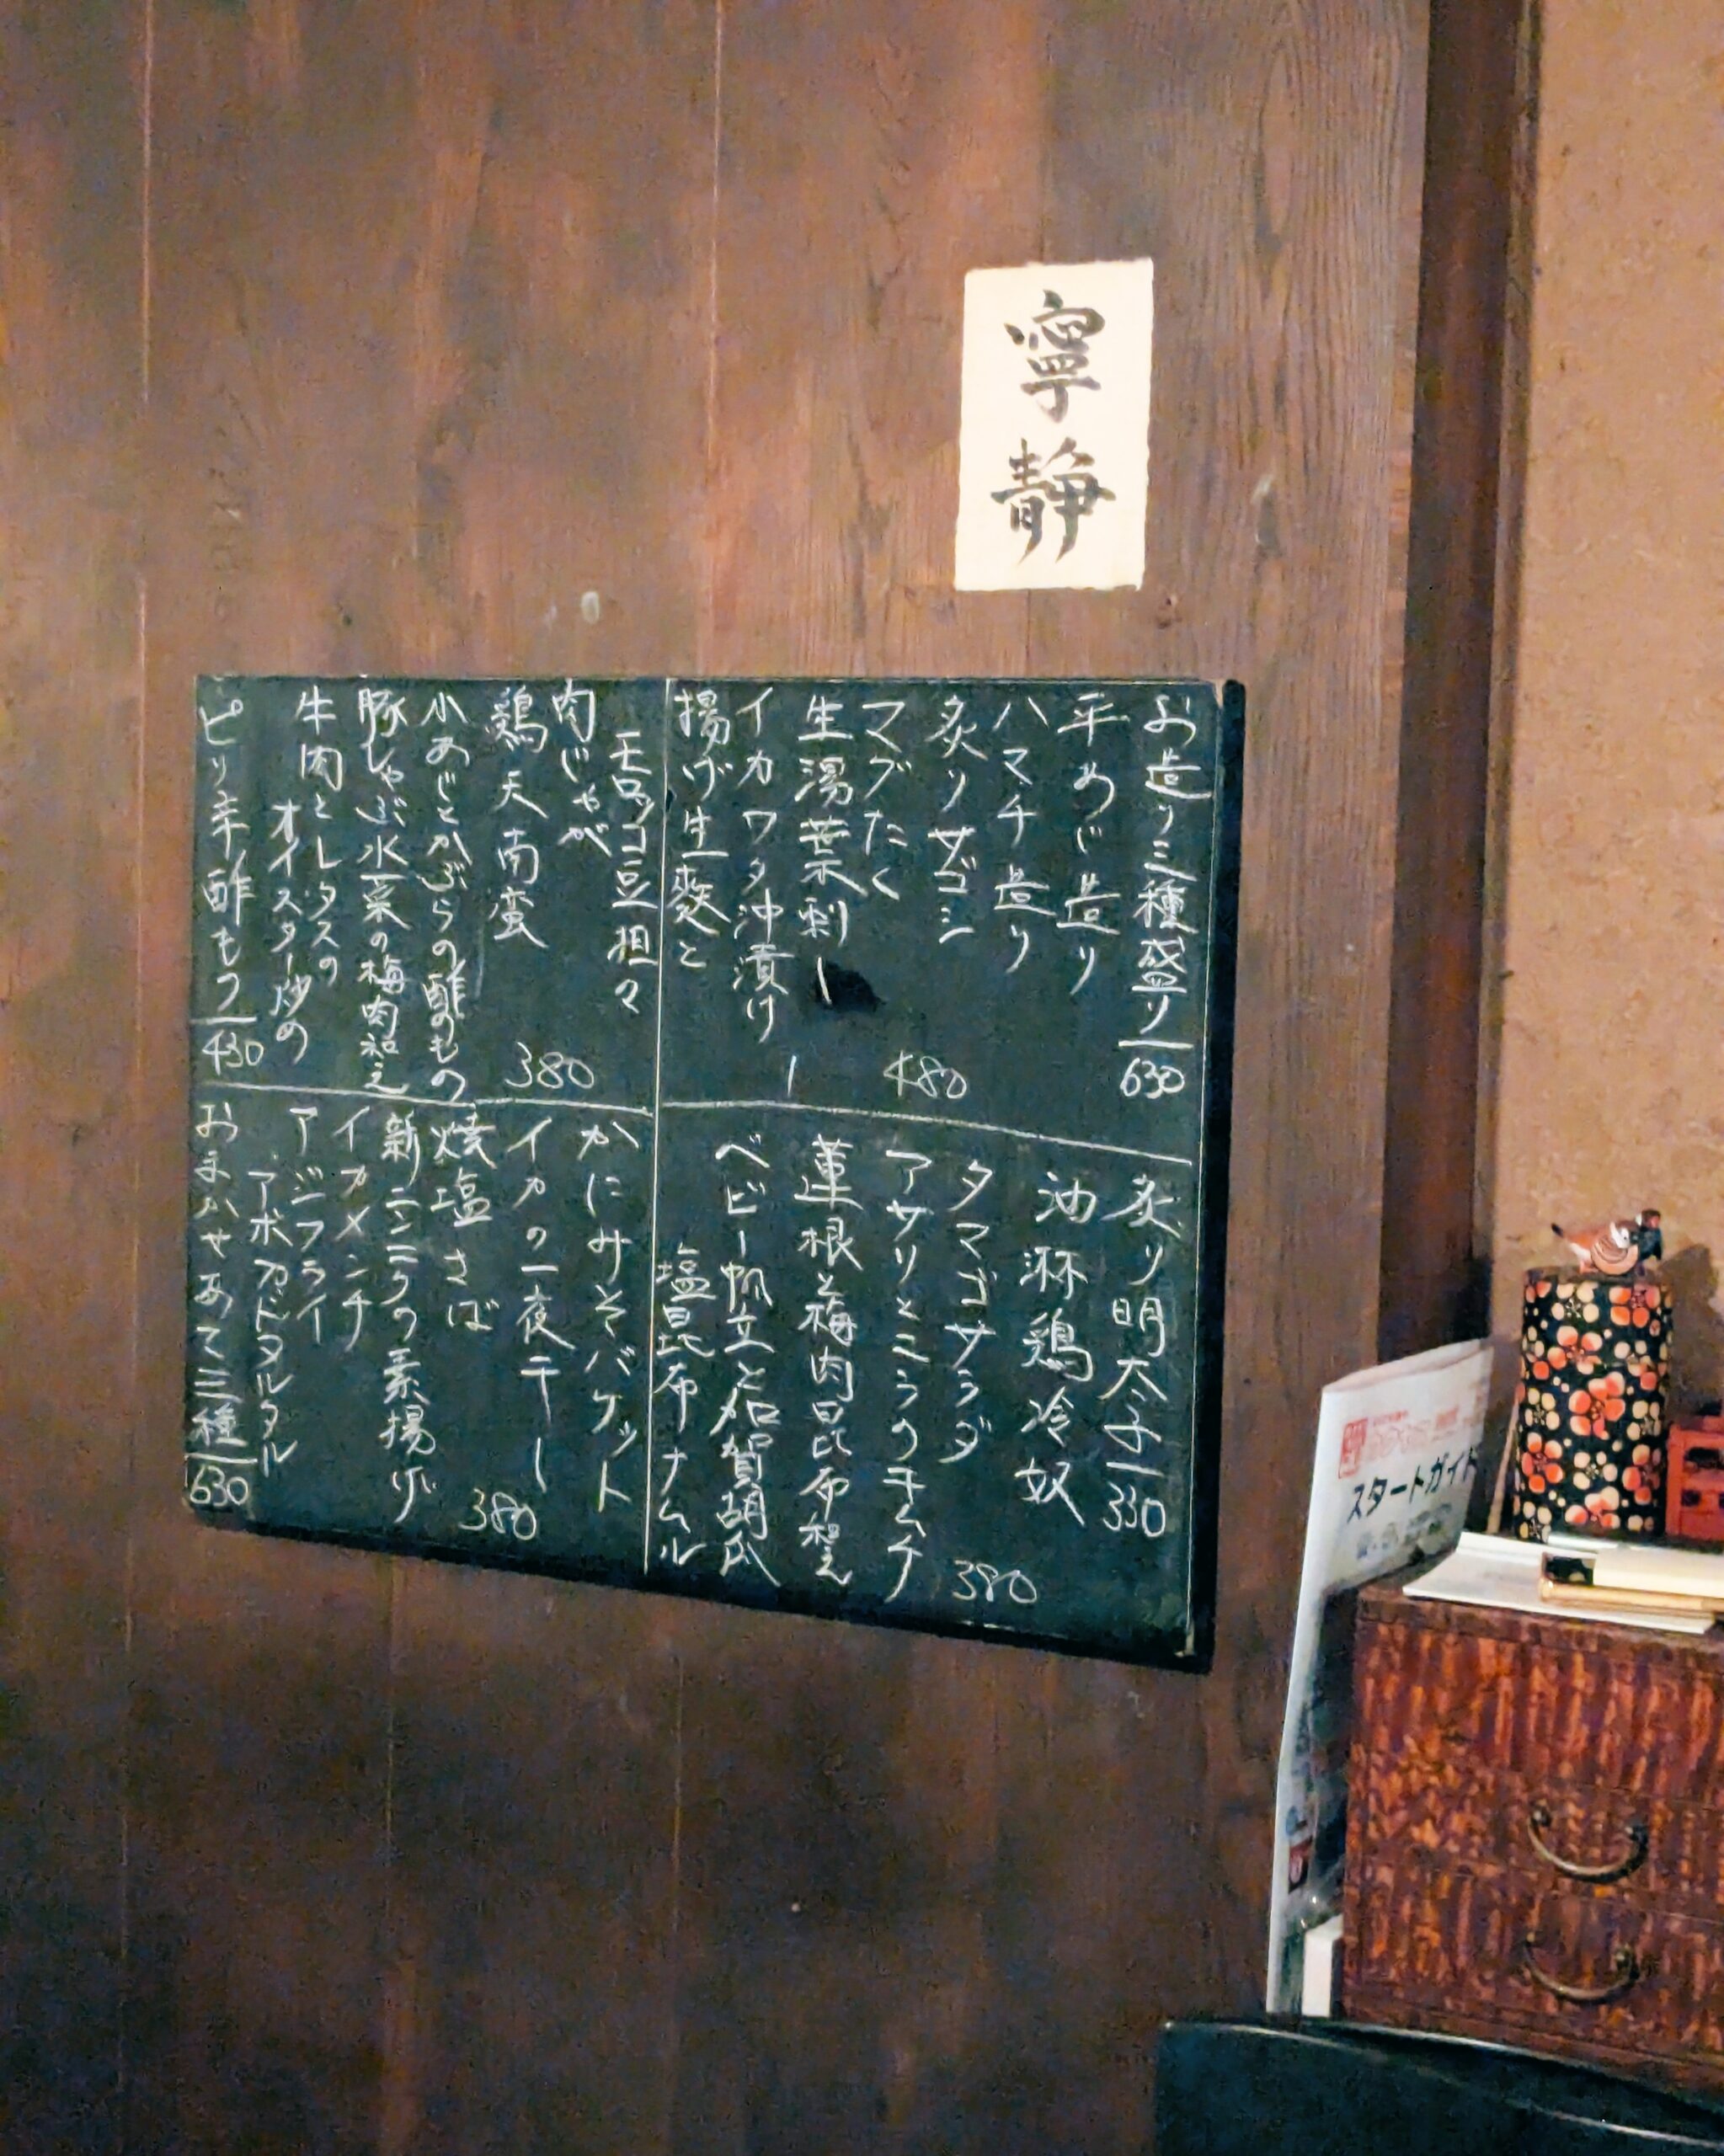 寧静
お造り三種盛り 630
平めじ造り
ハマチ造り
炙りサゴシ
マグたく
480
生湯葉刺し
イカワタ沖漬け
揚げ生麩と
モロッコ豆担々
肉じゃが
鶏天南蛮
380
小あじとかぶらの酢のもの
豚しゃぶ水菜の梅肉和え
牛肉とレタスの
オイスター炒め
ピリ辛酢もつ 430
炙り明太子 330
油淋鶏冷奴
タマゴサラダ
380
アサリとニラのキムチ
蓮根と梅肉昆布和え
ベビー帆立と加賀胡瓜
塩昆布ナムル
かにみそバケット
イカの一夜干し
380
焼塩さば
新ニンニクの素揚げ
イカメンチ
アジフライ
アボカドタルタル
おまかせあて三種 630
スタートガイド